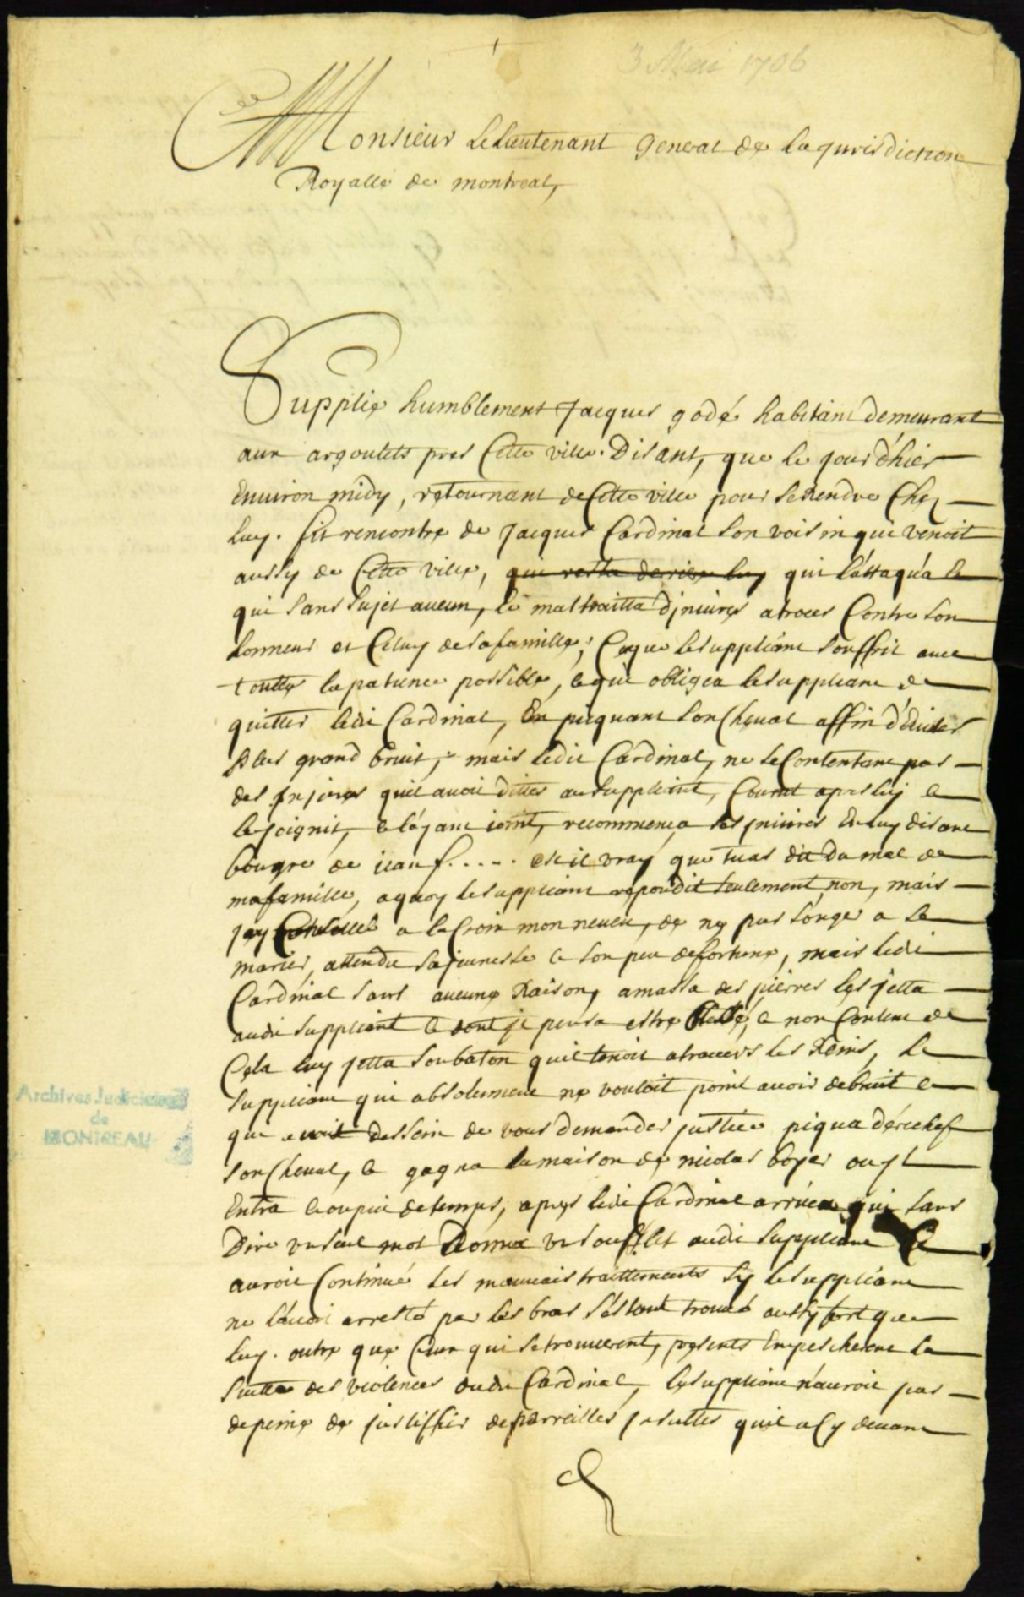 3 Mai 1706
Monsieur Le Lieutenant general de la jurisdiction
Royalle de montreal,
Supplie humblement Jacques godé habitant demeurant
aux argoulets pres Cette ville. Disant, que le jour d'hier
Environ midy, retournant de Cette ville pour se Rendre Chez
luy. fit rencontre de Jacques Cardinal son voisin qui venoit
aussy de Cette ville, qui resta derriere luy qui l'attaqu'a le
qui sans sujet aucun, le maltraitta d'jniures atroces Contre son
honneur et Celuy de sa famille, Ce que le suppliant souffrit avec
toutte la patience possible, ce qui obligea le suppliant de
quitter ledit Cardinal, En picquant son Cheval affin d'éviter
plus grand bruit, mais ledit Cardinal, ne se Contentant pas
des Injures quil avoit dittes au suppliant, Courut apres luy e
le joignit, e l'éyant joint, recommença ses jniures En luy disant
bougre de jean f..... est il vray que tu as dit du mal de
ma famille, a quoy le suppliant repondit seulement non, mais
jay Conseillé a la Croix mon neveu, de ny pas songer a se
marier, attendu sa jeunesse e son peu de fortune, mais ledit
Cardinal sans aucune Raison, amassa des pierres les jetta
audit suppliant e dont jl pensa estre blessé, e non Content de
Cela luy jetta son baton quil tenoit a travers les Reins, le
suppliant qui absolument ne vouloit point avoir de bruit e
que avoit dessein de vous demander justice piqua dérechef
son Cheval, e gagna la maison de nicolas boyer ou jl
Entra e un peu de temps, apres ledit Cardinal arriva qui sans
Dire un seul mot Donna un soufflet audit suppliant e
auroit Continué ses mauvais traittements sy le suppliant
ne l'eust arresté par les bras s'éstant trouvé aussy fort que
luy. outre que Ceux qui se trouverent, presents Empescherent la
suitte des violences dudit Cardinal, le suppliant n'auroit pas
de peine de justiffier de parreilles jnsultes quil a Cy devant
Archives Judiciaires
de
MONTREAL